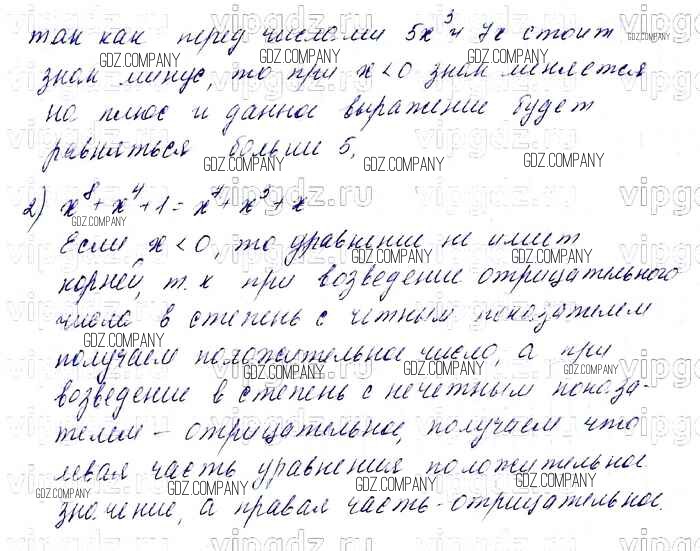 так как перед числами 5x³ и 7x стоит
знак минус, то при x<0 знак меняется
на плюс и данное выражение будет
равняться больше 5.
2) x⁸+x⁴+1=x⁷+x³+x
Если x<0, то уравнение не имеет
корней, т.к при возведение отрицательного
числа в степень с четным показателем
получаем положительное число, а при
возведение в степень с нечетным показа-
телем – отрицательное, получаем что
левая часть уравнения положительное
значение, а правая часть - отрицательное.